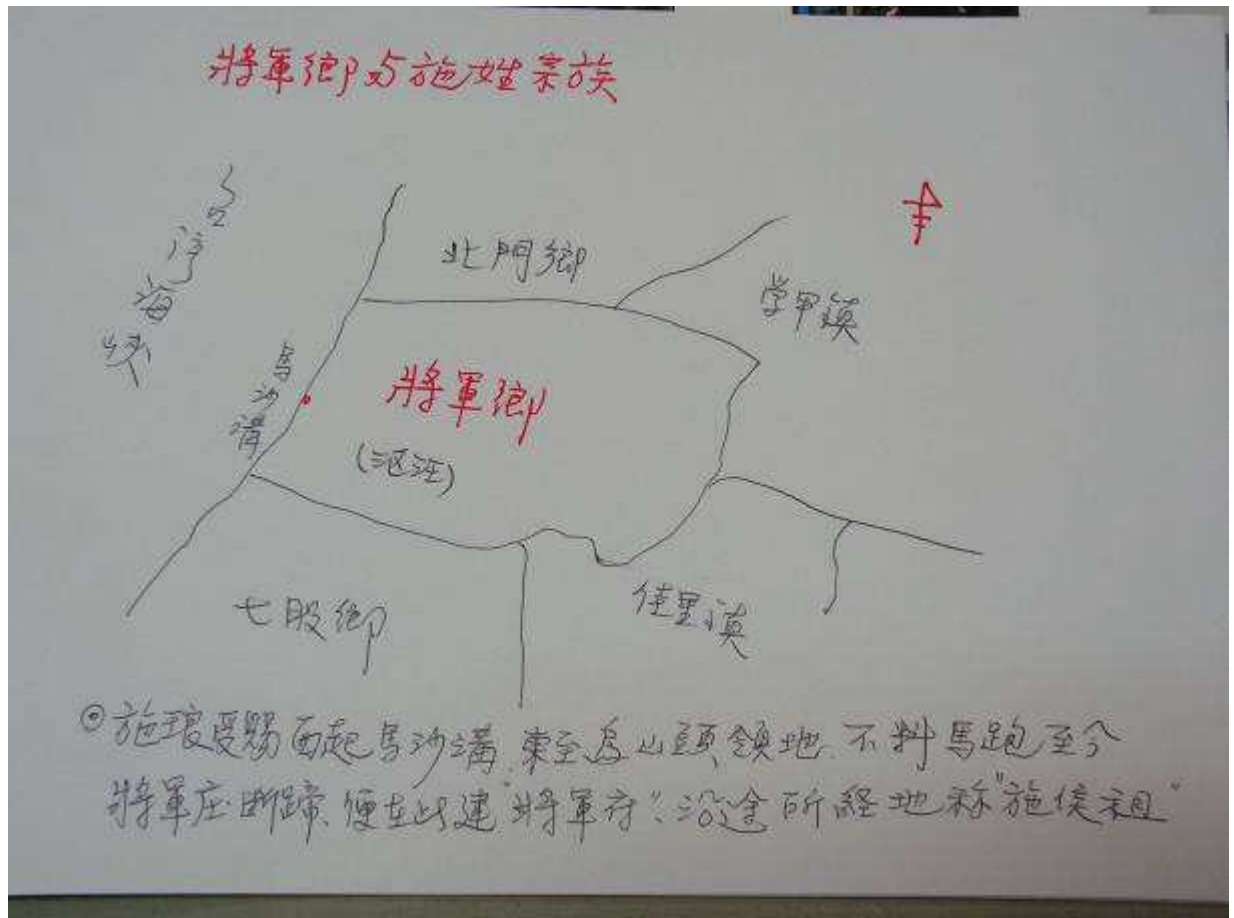 將軍鄉与施姓宗族
台湾海峡
北門鄉
学甲鎮
馬沙溝
將軍鄉
(沤汪)
七股鄉
佳里鎮
◎施琅受賜西起馬沙溝.東至烏山頭領地.不料馬跑至今
將軍庄断蹄、便在此建"將軍府".沿途所経地称"施侯租"